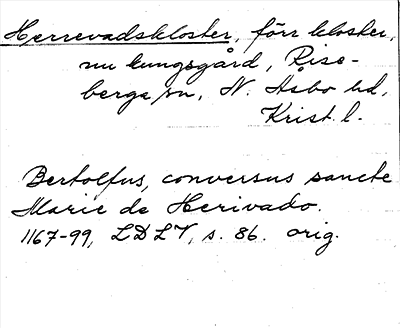 Herrevadskloster, förr kloster,
nu kungsgård, Rise-
berga sn, N. Åsbo hd,
Krist. l.
Bertolfus, conversus sancte
Marie de Herivado.
1167-99, LDLV, s. 86. orig.